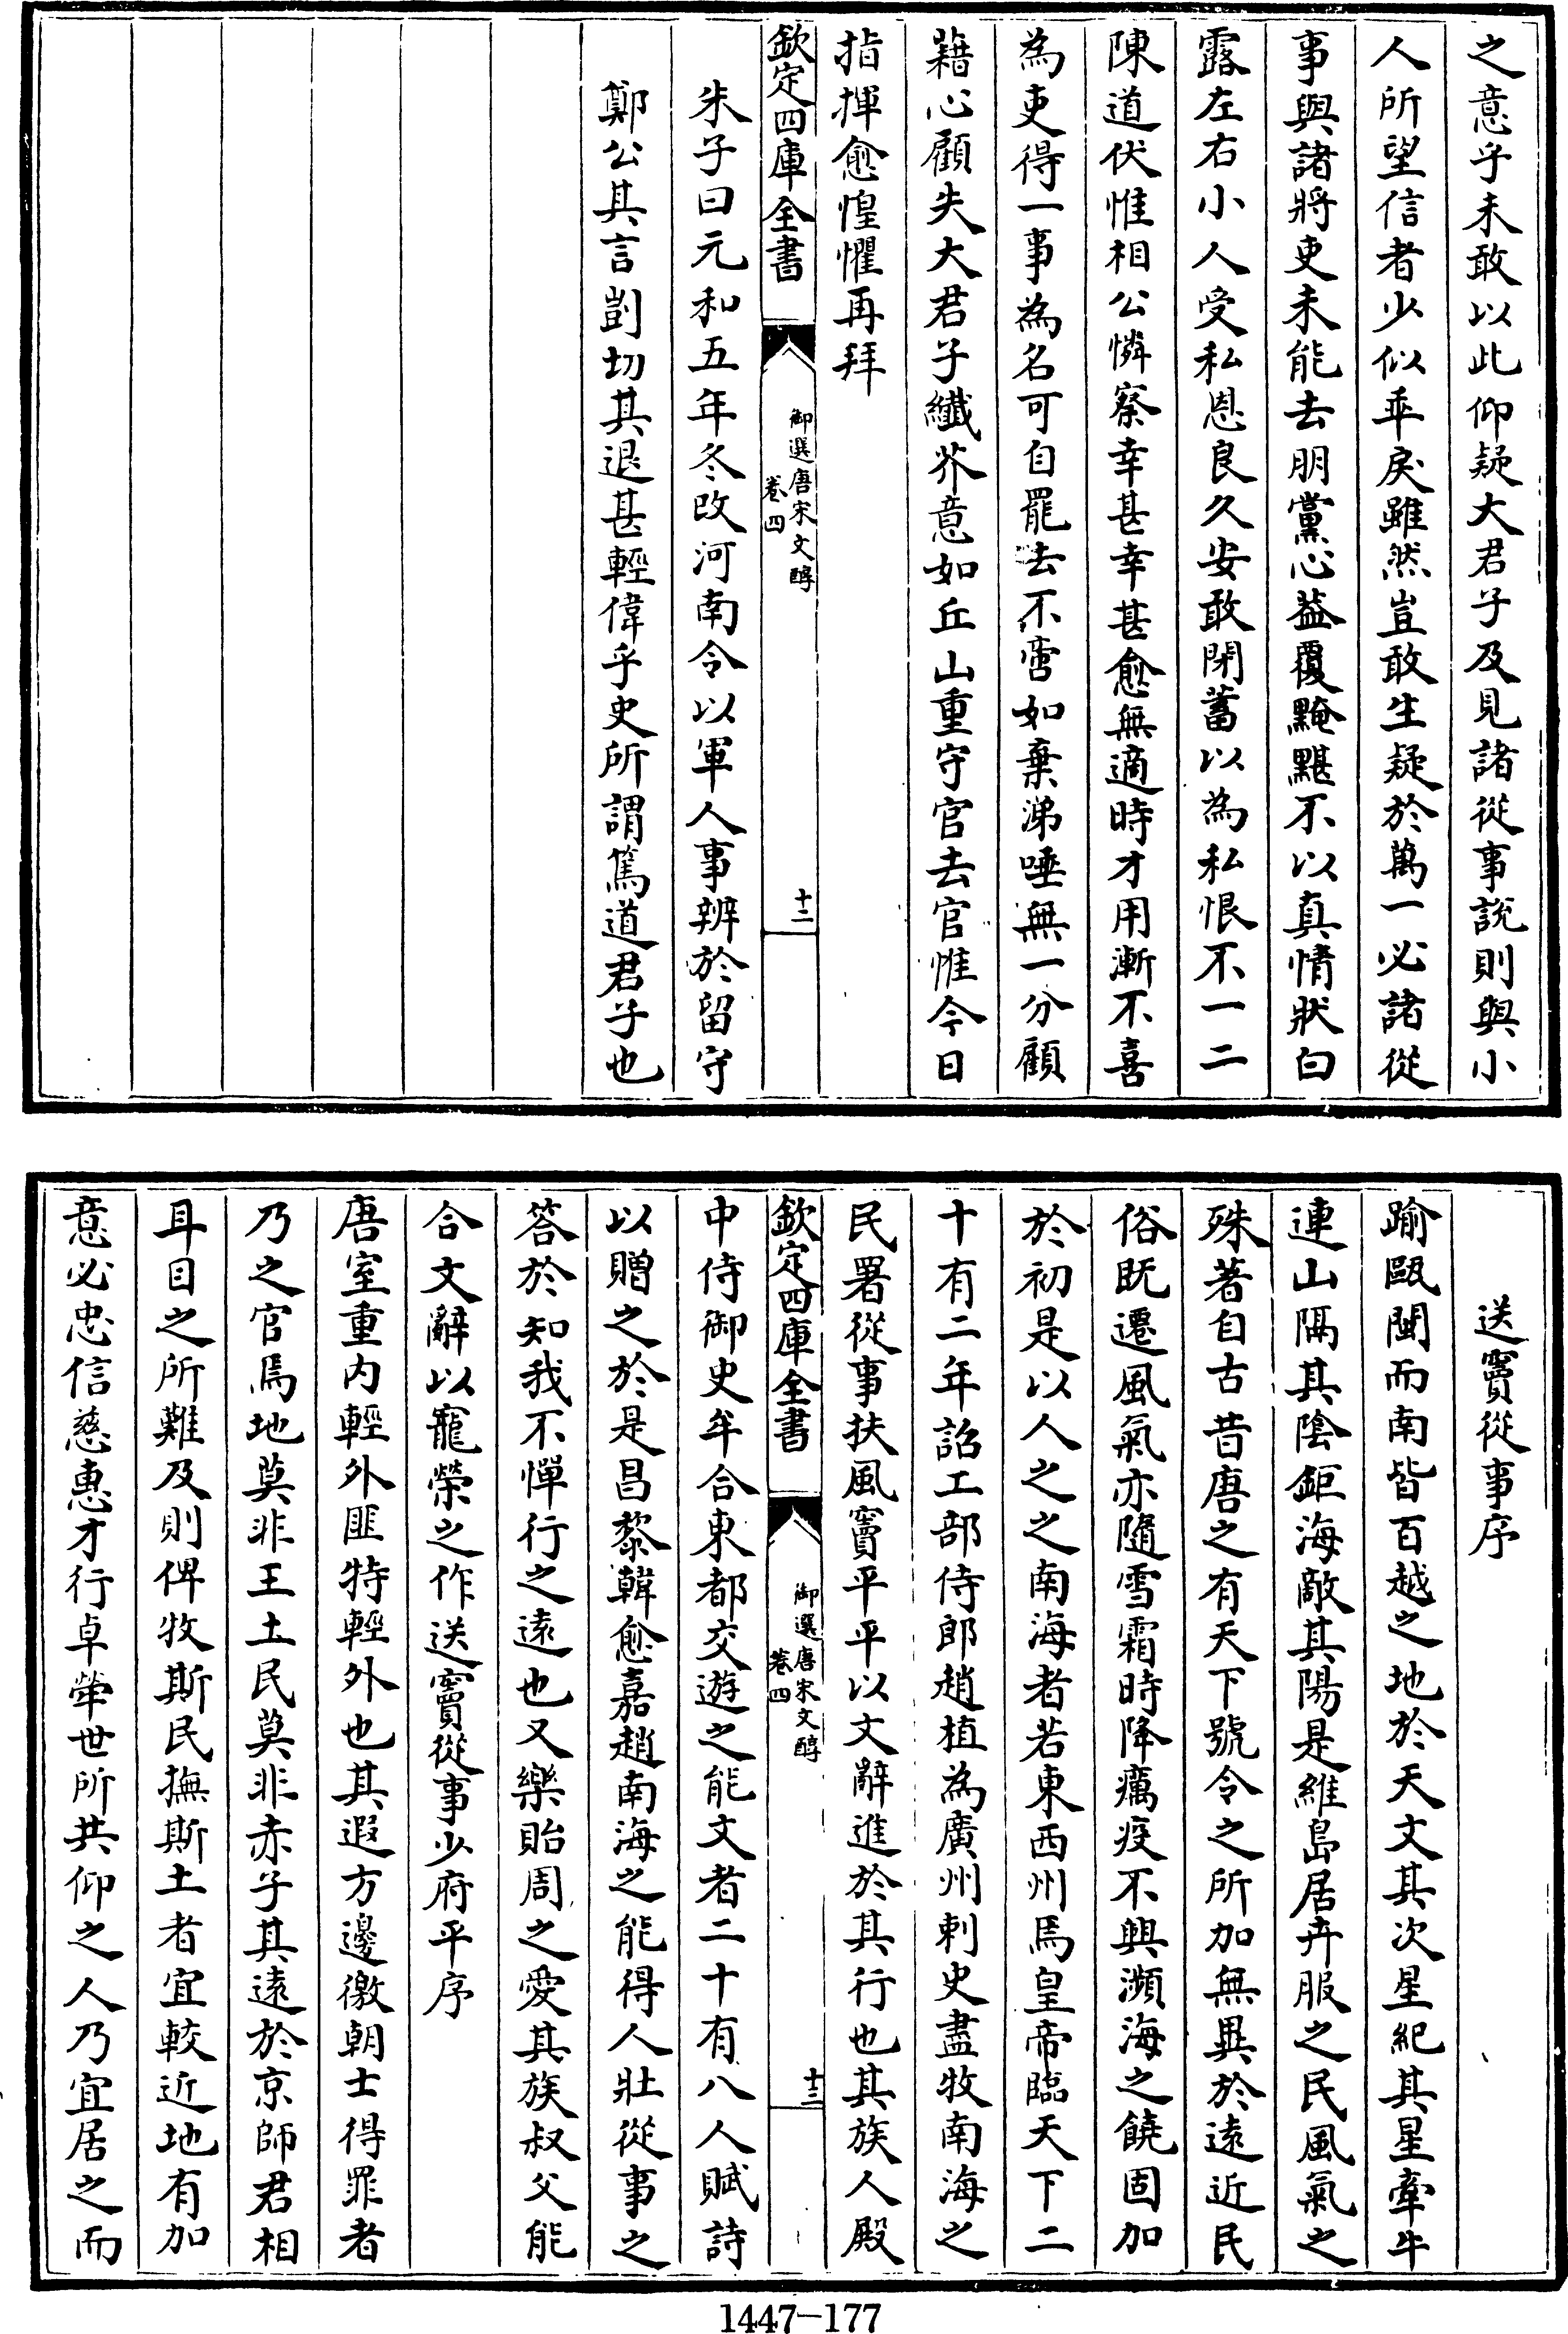 之意乎未敢以此仰疑大君子及見諸從事說則與小
人所望信者少似乖戾雖然豈敢生疑於萬一必諸從
事與諸將吏未能去朋黨心葢覆黤黮不以真情狀白
露左右小人受私恩良久安敢閉蓄以為私恨不一二
陳道伏惟相公憐察幸甚幸甚愈無適時才用漸不喜
為吏得一事為名可自罷去不啻如棄涕唾無一分顧
藉心顧失大君子纖芥意如丘山重守官去官惟今日
指揮愈惶懼再拜
欽定四庫全書
御選唐宋文醇
卷四
十二
朱子曰元和五年冬改河南令以軍人事辨於留守
鄭公其言剴切其退甚輕偉乎史所謂篤道君子也
送竇從事序
踰甌閩而南皆百越之地於天文其次星紀其星牽牛
連山隔其陰鉅海敵其陽是維島居卉服之民風氣之
殊著自古昔唐之有天下號令之所加無異於遠近民
俗既遷風氣亦隨雪霜時降癘疫不興瀕海之饒固加
於初是以人之之南海者若東西州焉皇帝臨天下二
十有二年詔工部侍郎趙植為廣州刺史盡牧南海之
民署從事扶風竇平平以文辭進於其行也其族人殿
欽定四庫全書
御選唐宋文醇
卷四
十三
中侍御史牟合東都交遊之能文者二十有八人賦詩
以贈之於是昌黎韓愈嘉趙南海之能得人壯從事之
答於知我不憚行之遠也又樂貽周之愛其族叔父能
合文辭以寵榮之作送竇從事少府平序
唐室重內輕外匪特輕外也其遐方邊徼朝士得罪者
乃之官焉地莫非王土民莫非赤子其遠於京師君相
耳目之所難及則俾牧斯民撫斯土者宜較近地有加
意必忠信慈惠才行卓犖世所共仰之人乃宜居之而
1447-177